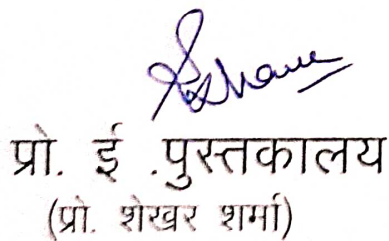 प्रो. ई .पुस्तकालय
(प्रो. शेखर शर्मा)